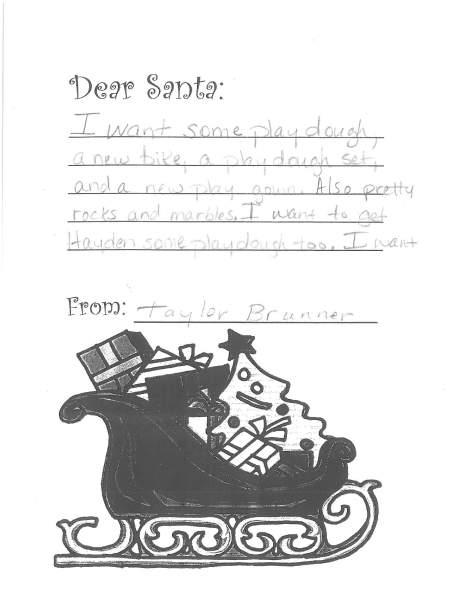 Dear Santa:
I want some play dough,
a new bike, a play dough set,
and a new play gown. Also pretty
rocks and marbles. I want to get
Hayden some playdough too. I want
From: Taylor Brunner